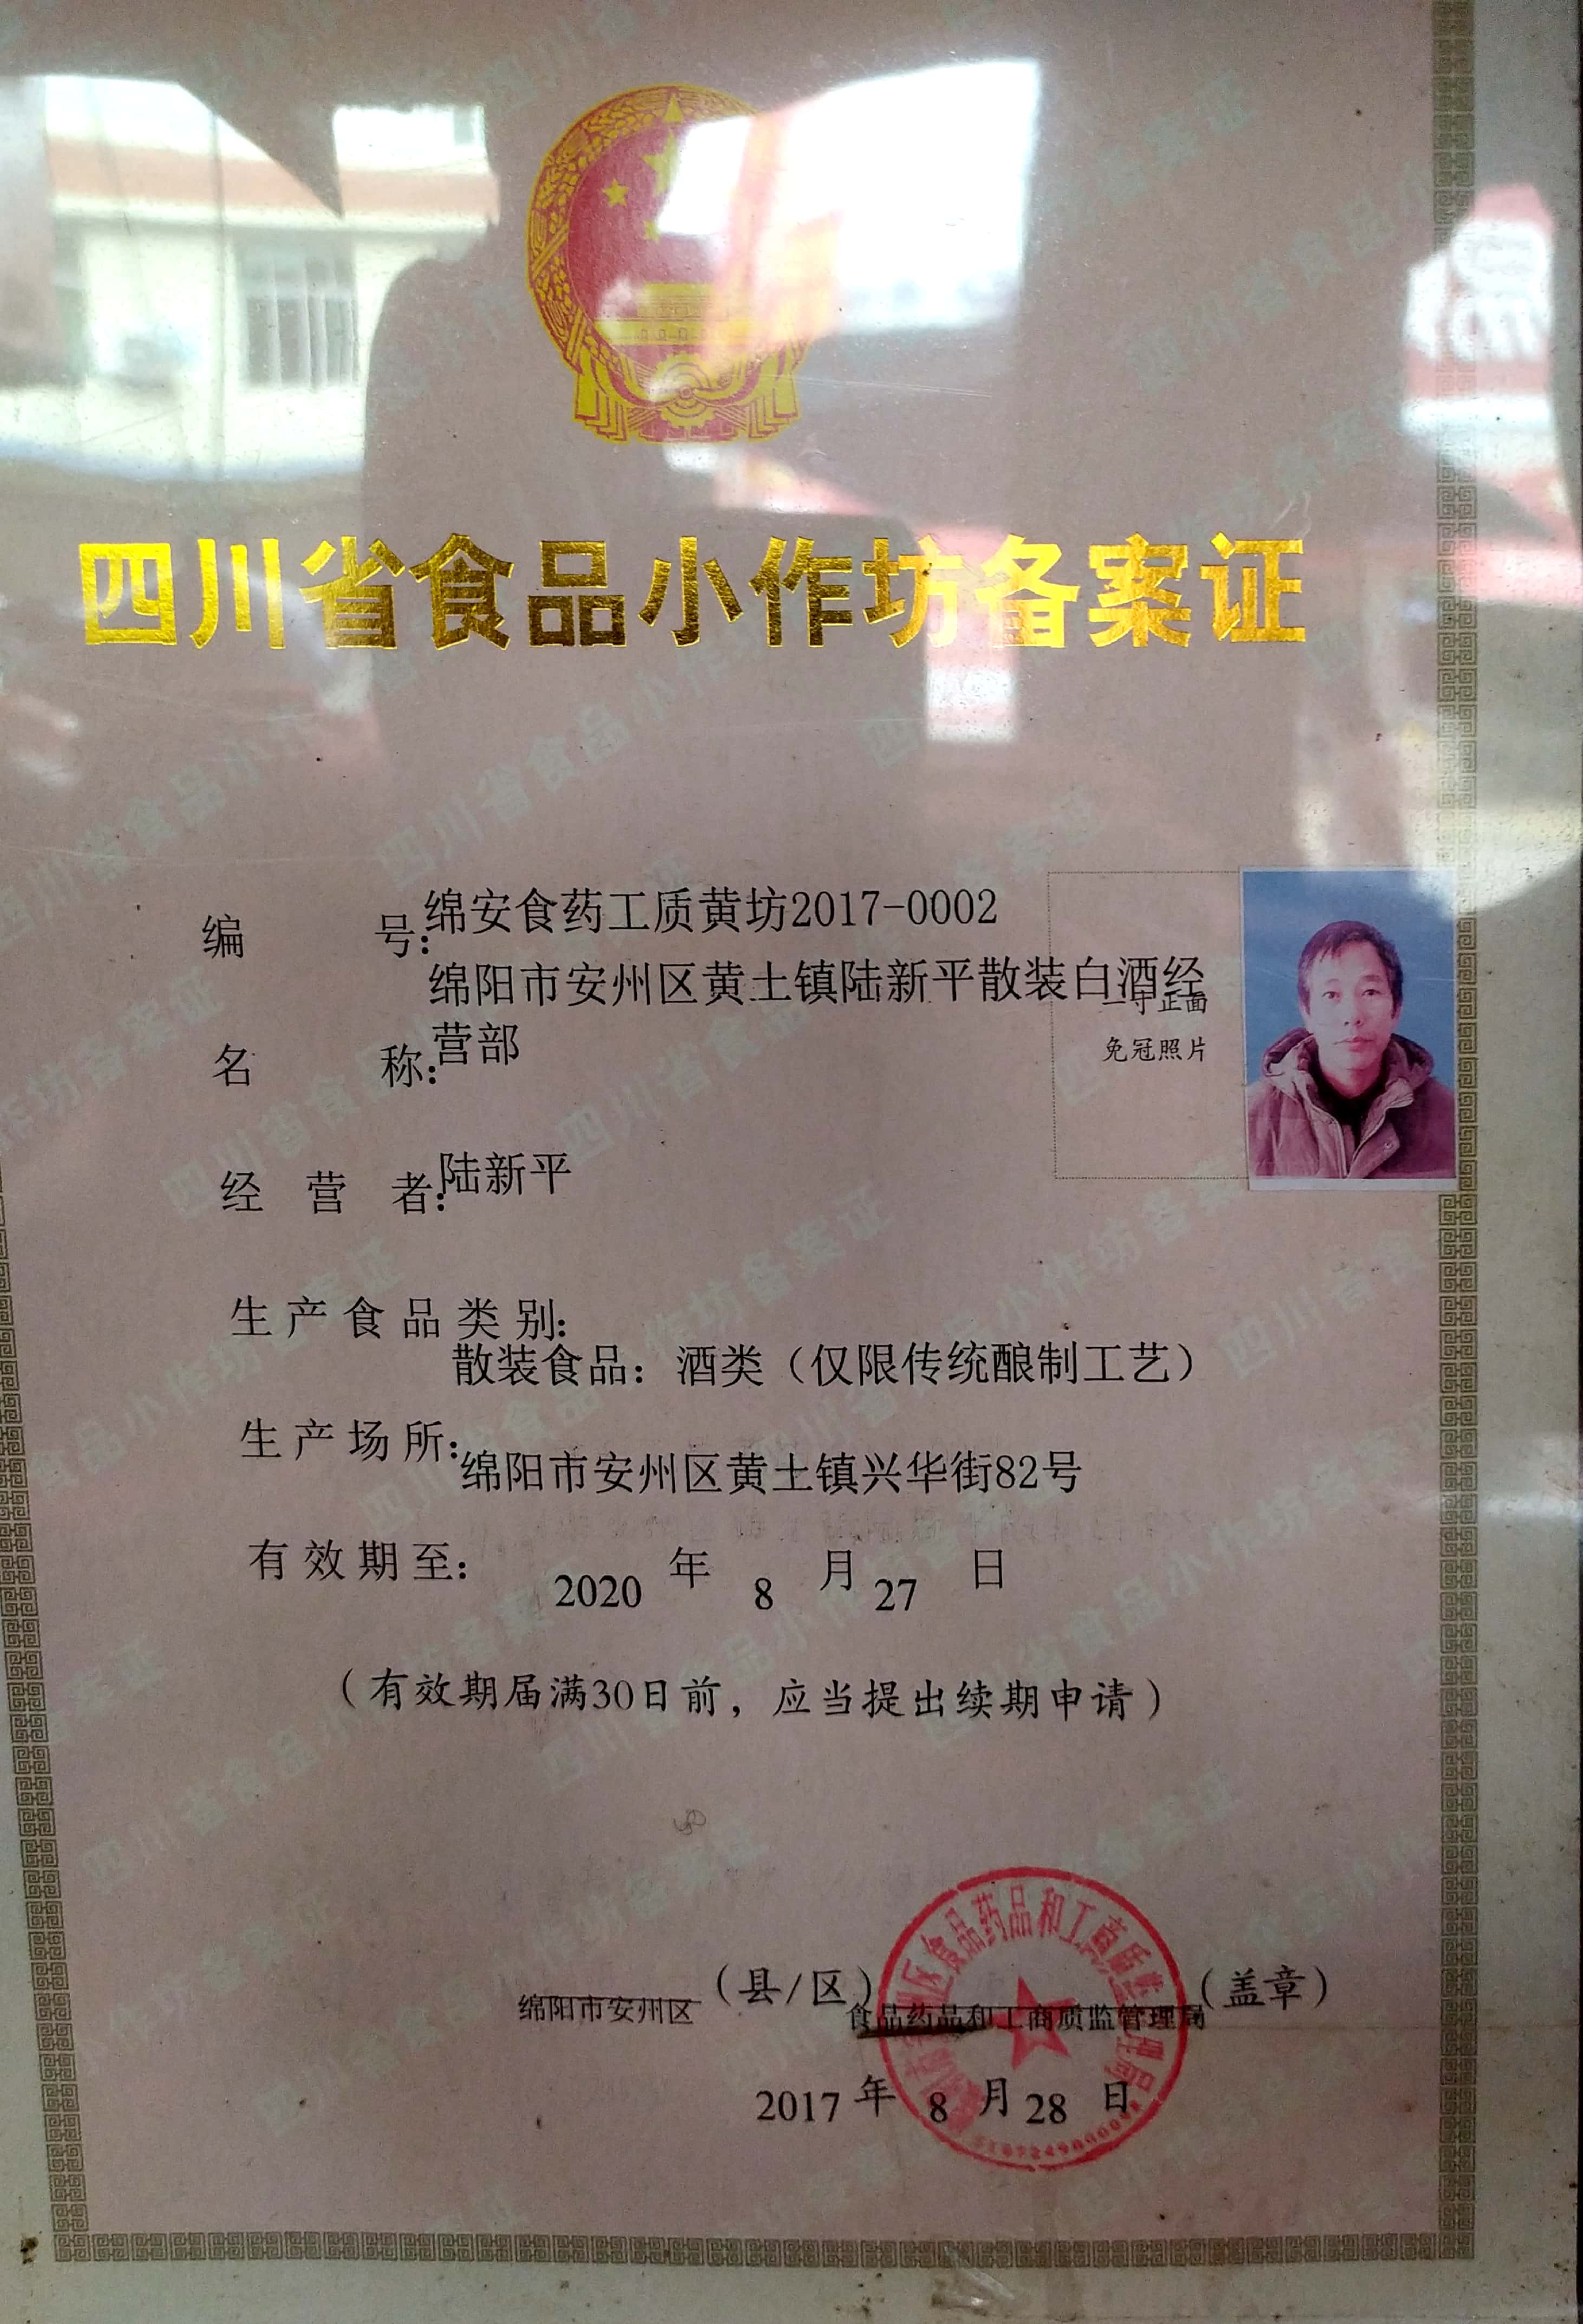 四川省食品小作坊备案证
编 号：绵安食药工质黄坊2017-0002
名 称：绵阳市安州区黄土镇陆新平散装白酒经
营部
一寸正面
免冠照片
经 营 者：陆新平
生产食品类别：
散装食品：酒类（仅限传统酿制工艺）
生产场所：绵阳市安州区黄土镇兴华街82号
有效期至： 2020 年 8 月 27 日
（有效期届满30日前，应当提出续期申请）
绵阳市安州区（县/区）食品药品和工商质监管理局（盖章）
2017 年 8 月 28 日